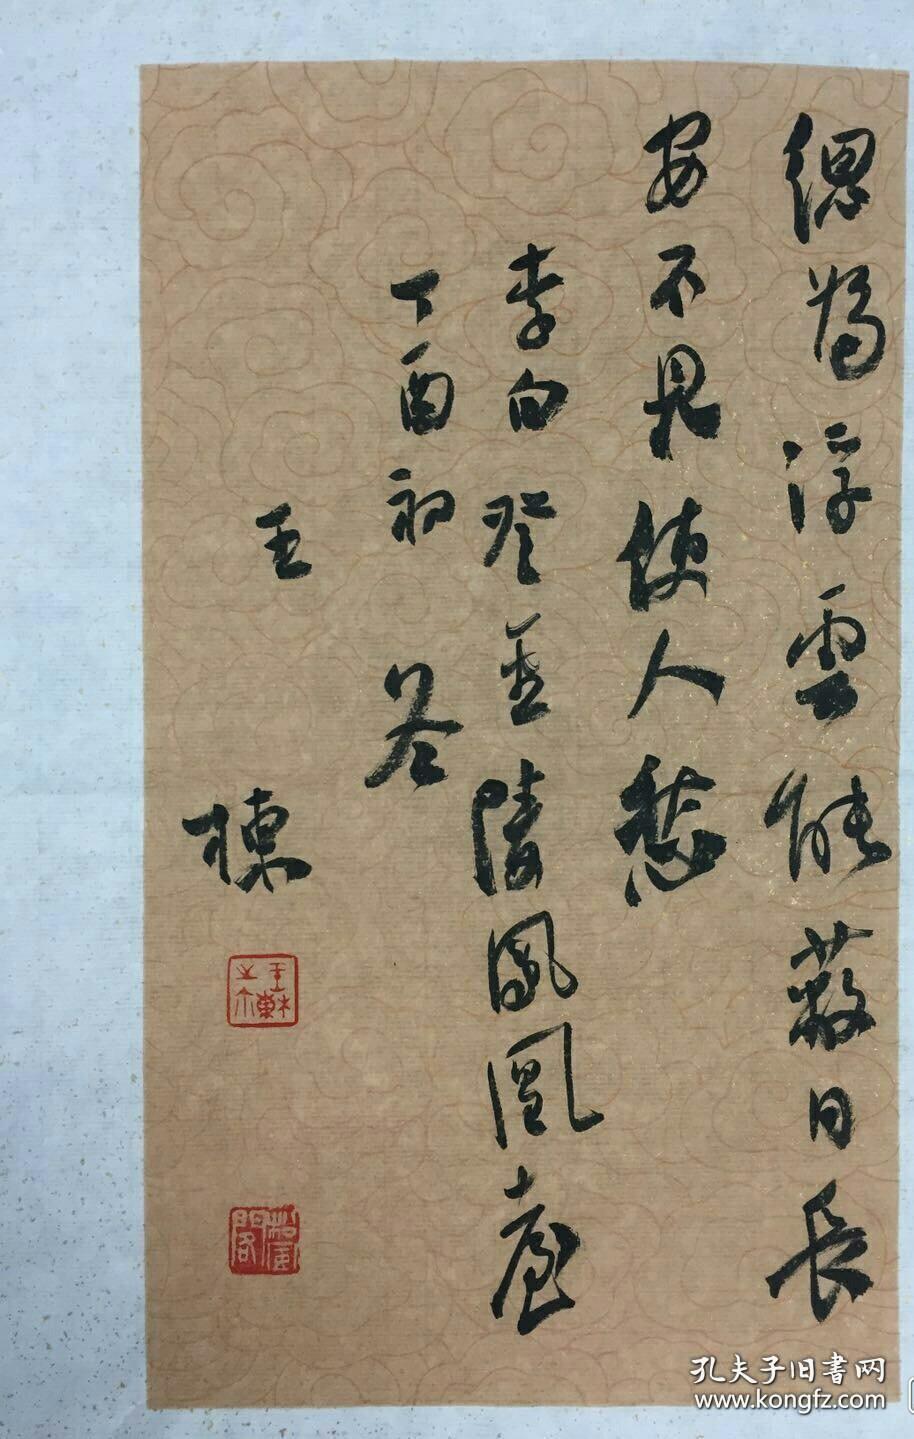 偲為浮雲能蔽日長
安不見使人愁
李白登金陵鳳凰臺
丁酉初冬
王棟
王棟之尒
松風閣
孔夫子旧書网
www.kongfz.com